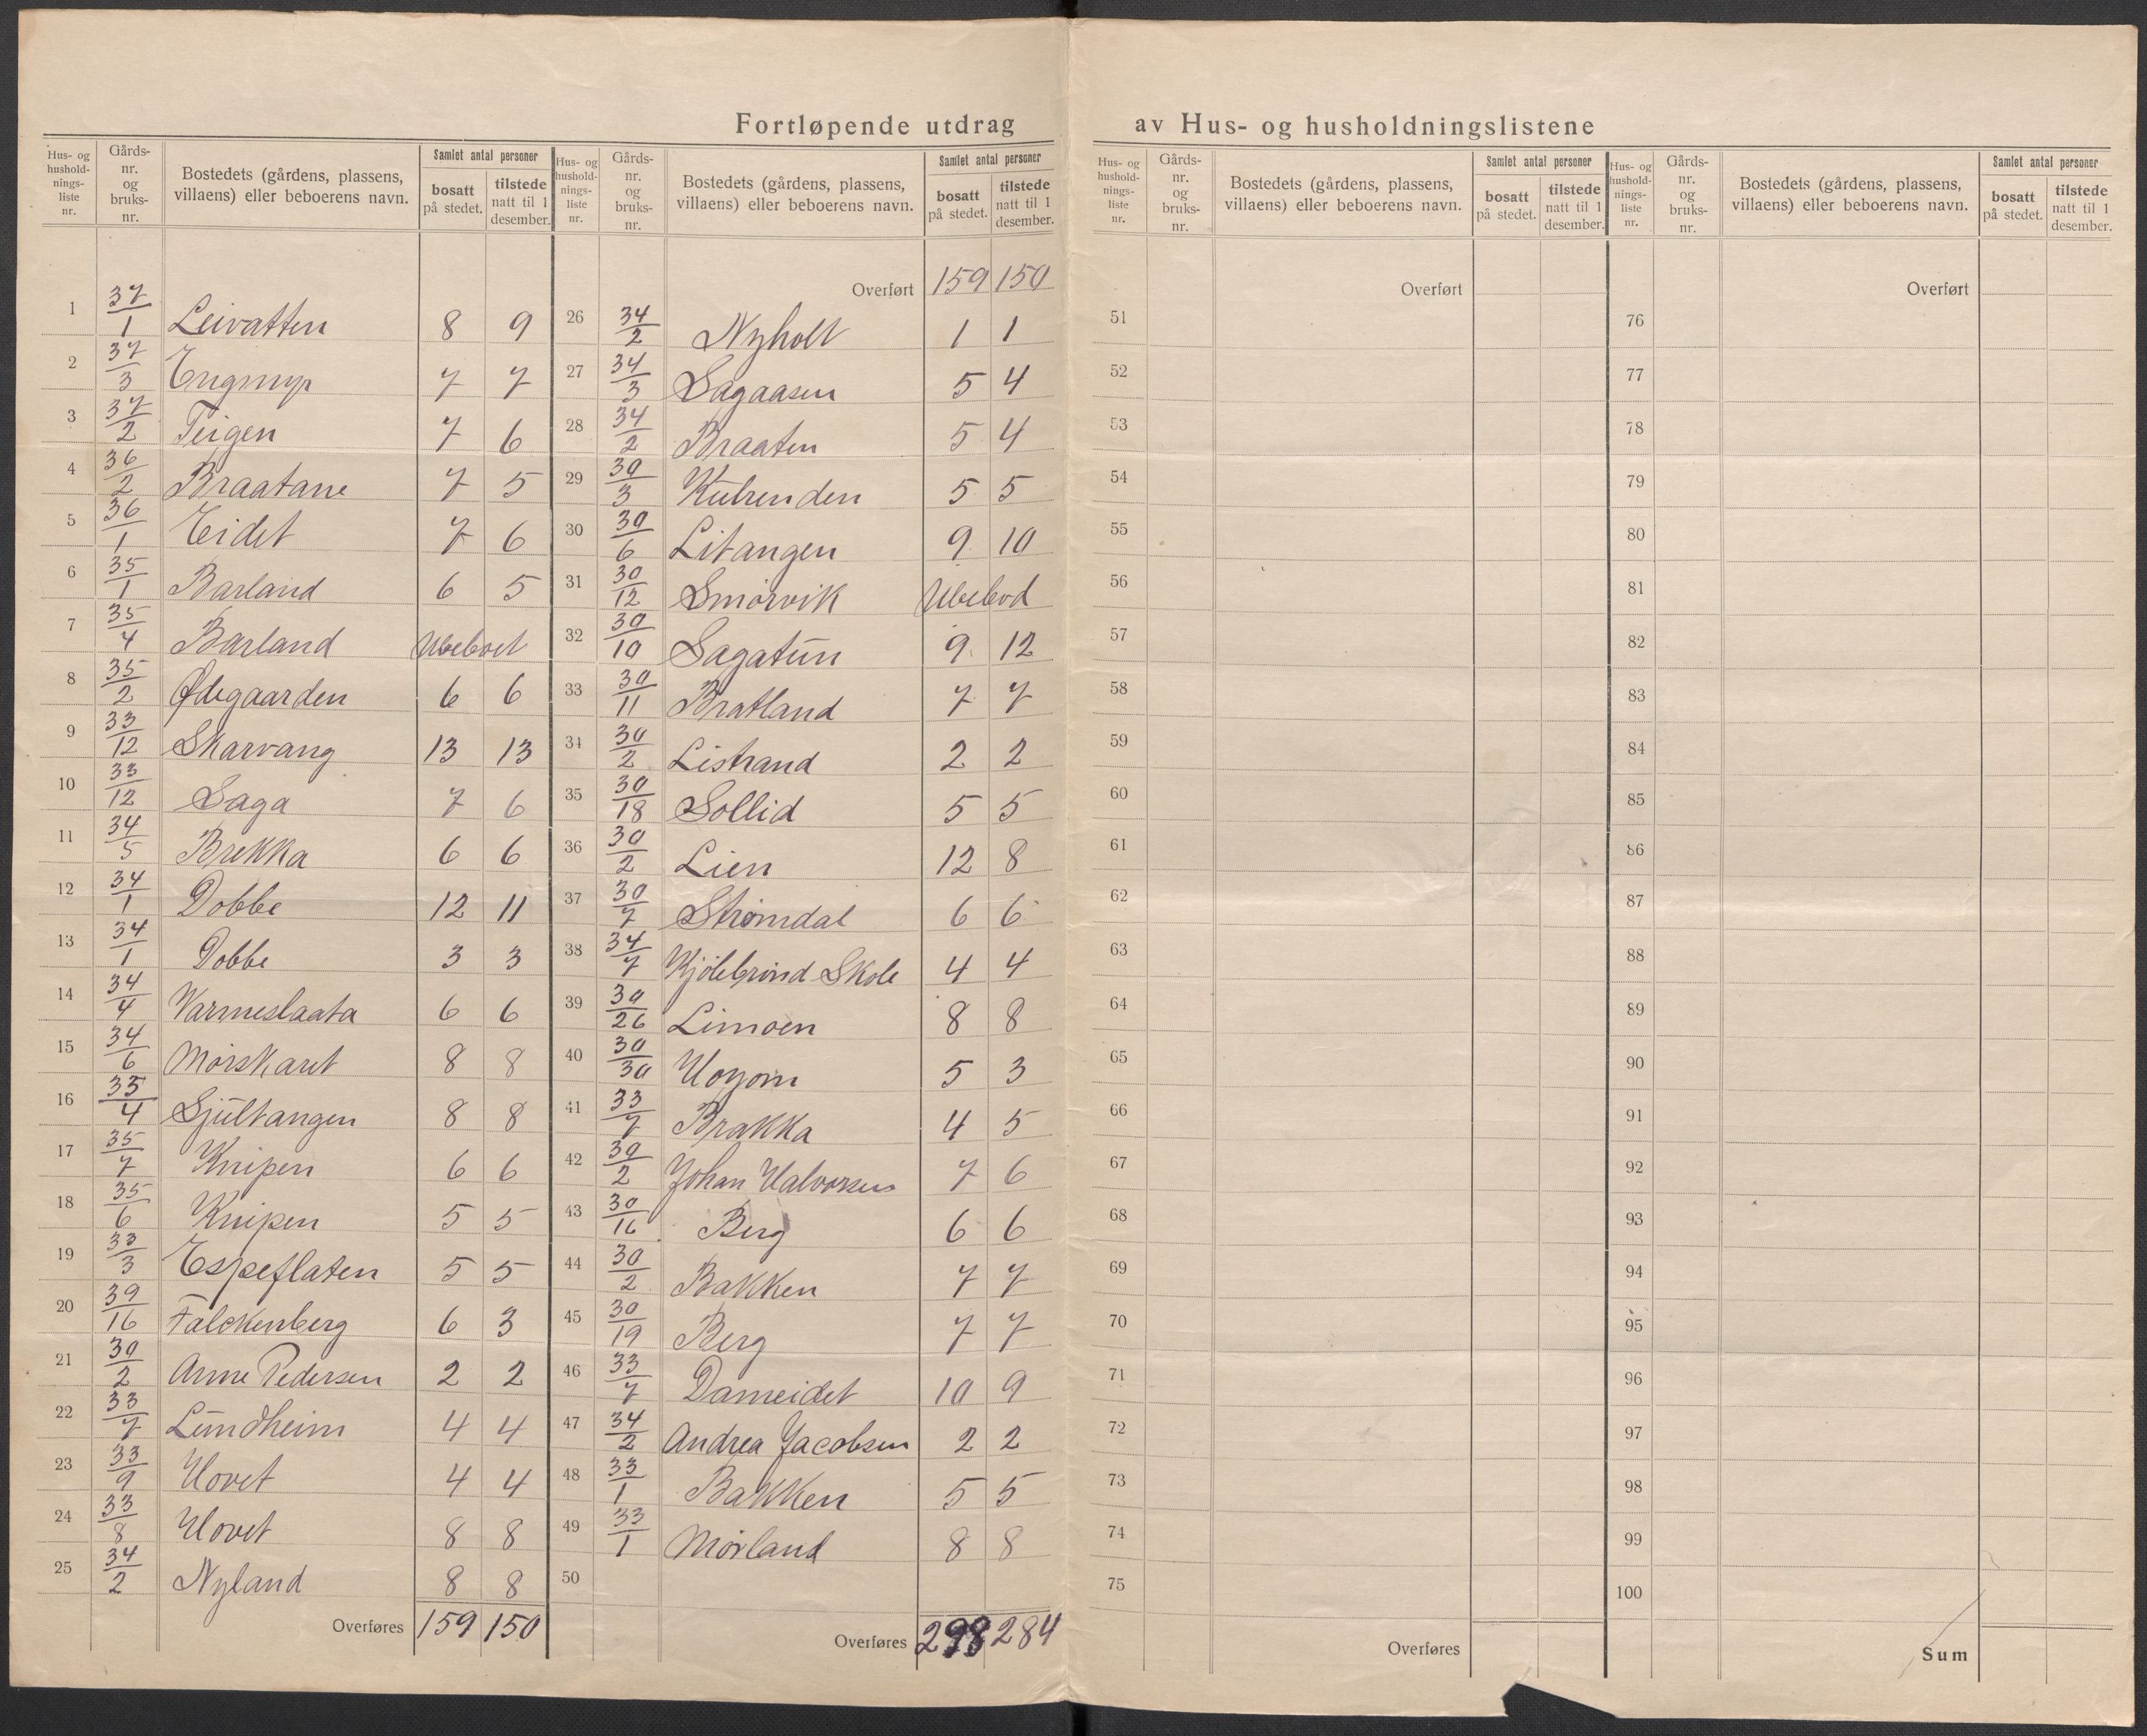 Fortløpende utdrag av Hus- og husholdningslistene
Hus- og husholdningsliste nr.
Gårds-nr. og bruks-nr.
Bostedets (gårdens, plassens, villaens) eller beboerens navn.
Samlet antal personer
bosatt på stedet.
tilstede natt til 1 desember.
1 37/1 Leivatten 8 9
2 37/3 Engmyr 7 7
3 37/2 Teigen 7 6
4 36/2 Braatane 7 5
5 36/1 Eidet 7 6
6 35/1 Barland 6 5
7 35/4 Barland Ubeboet
8 35/2 Ødegaarden 6 6
9 33/12 Skarvang 13 13
10 33/12 Saga 7 6
11 34/5 Brekka 6 6
12 34/1 Dobbe 12 11
13 34/1 Dobbe 3 3
14 34/4 Varmeslaata 6 6
15 34/6 Morskaret 8 8
16 35/4 Sjültangen 8 8
17 35/7 Knipen 6 6
18 35/6 Knipen 5 5
19 33/3 Espeflaten 5 5
20 39/16 Falckenberg 6 3
21 30/2 Anne Pedersen 2 2
22 33/7 Lündheim 4 4
23 33/9 Hovet 4 4
24 33/8 Hovet 8 8
25 34/2 Nyland 8 8
Overføres 159 150
Hus- og husholdningsliste nr.
Gårds-nr. og bruks-nr.
Bostedets (gårdens, plassens, villaens) eller beboerens navn.
Samlet antal personer
bosatt på stedet.
tilstede natt til 1 desember.
Overført 159 150
26 34/2 Nyholt 1 1
27 34/3 Sagaasen 5 4
28 34/2 Braaten 5 4
29 30/3 5 5
30 30/6 Litangen 9 10
31 30/12 Smørvik Ubebod
32 30/10 Sagatün 9 12
33 30/11 Bratland 7 7
34 30/2 Listrand 2 2
35 30/18 Sollid 5 5
36 30/2 Lien 12 8
37 30/7 Strømdal 6 6
38 34/7 Kjølebrønd Skole 4 4
39 30/26 Limoen 8 8
40 30/30 5 3
41 33/7 Brakka 4 5
42 30/2 Johan Halvorsen 7 6
43 30/16 Berg 6 6
44 30/2 Bakken 7 7
45 30/19 Berg 7 7
46 33/7 Dameidet 10 9
47 34/2 Andrea Jacobsen 2 2
48 33/1 Bakken 5 5
49 33/1 Mørland 8 8
50
Overføres 298 284
Hus- og husholdningsliste nr.
Gårds-nr. og bruks-nr.
Bostedets (gårdens, plassens, villaens) eller beboerens navn.
Samlet antal personer
bosatt på stedet.
tilstede natt til 1 desember.
Overført
51
52
53
54
55
56
57
58
59
60
61
62
63
64
65
66
67
68
69
70
71
72
73
74
75
Overføres
Hus- og husholdningsliste nr.
Gårds-nr. og bruks-nr.
Bostedets (gårdens, plassens, villaens) eller beboerens navn.
Samlet antal personer
bosatt på stedet.
tilstede natt til 1 desember.
Overført
76
77
78
79
80
81
82
83
84
85
86
87
88
89
90
91
92
93
94
95
96
97
98
99
100
Sum